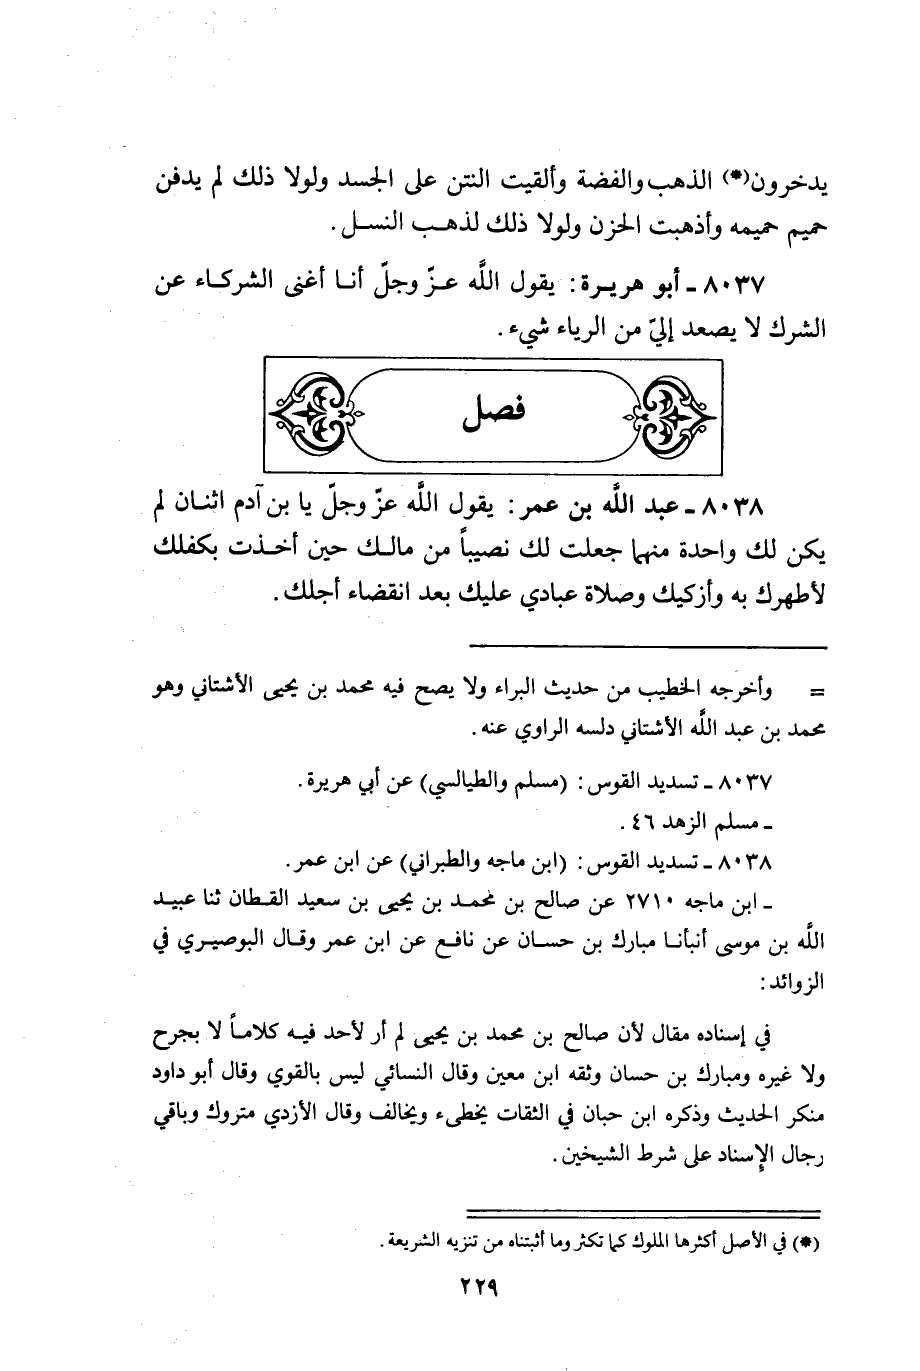 يدخرون(*) الذهب والفضة وألقيت النتن على الجسد ولولا ذلك لم يدفن
حميم حميمه وأذهبت الحزن ولولا ذلك لذهب النسل.
٨٠٣٧ ـ أبو هريرة: يقول اللَّه عزّ وجلّ أنا أغنى الشركاء عن
الشرك لا يصعد إليّ من الرياء شيء.
فصل
٨٠٣٨ ـ عبد اللَّه بن عمر: يقول اللَّه عزّ وجلّ يا بن آدم اثنان لم
يكن لك واحدة منهما جعلت لك نصيباً من مالك حين أخذت بكفلك
لأطهرك به وأزكيك وصلاة عبادي عليك بعد انقضاء أجلك.
= وأخرجه الخطيب من حديث البراء ولا يصح فيه محمد بن يحيى الأشتاني وهو
محمد بن عبد اللَّه الأشتاني دلسه الراوي عنه.
٨٠٣٧ ـ تسديد القوس: (مسلم والطيالسي) عن أبي هريرة.
ـ مسلم الزهد ٤٦.
٨٠٣٨ ـ تسديد القوس: (ابن ماجه والطبراني) عن ابن عمر.
ـ ابن ماجه ٢٧١٠ عن صالح بن محمد بن يحيى بن سعيد القطان ثنا عبيد
اللَّه بن موسى أنبأنا مبارك بن حسان عن نافع عن ابن عمر وقال البوصيري في
الزوائد:
في إسناده مقال لأن صالح بن محمد بن يحيى لم أر لأحد فيه كلاماً لا بجرح
ولا غيره ومبارك بن حسان وثقه ابن معين وقال النسائي ليس بالقوي وقال أبو داود
منكر الحديث وذكره ابن حبان في الثقات يخطىء ويخالف وقال الأزدي متروك وباقي
رجال الإسناد على شرط الشيخين.
(*) في الأصل أكثرها الملوك كما تكثر وما أثبتناه من تنزيه الشريعة.
٢٢٩